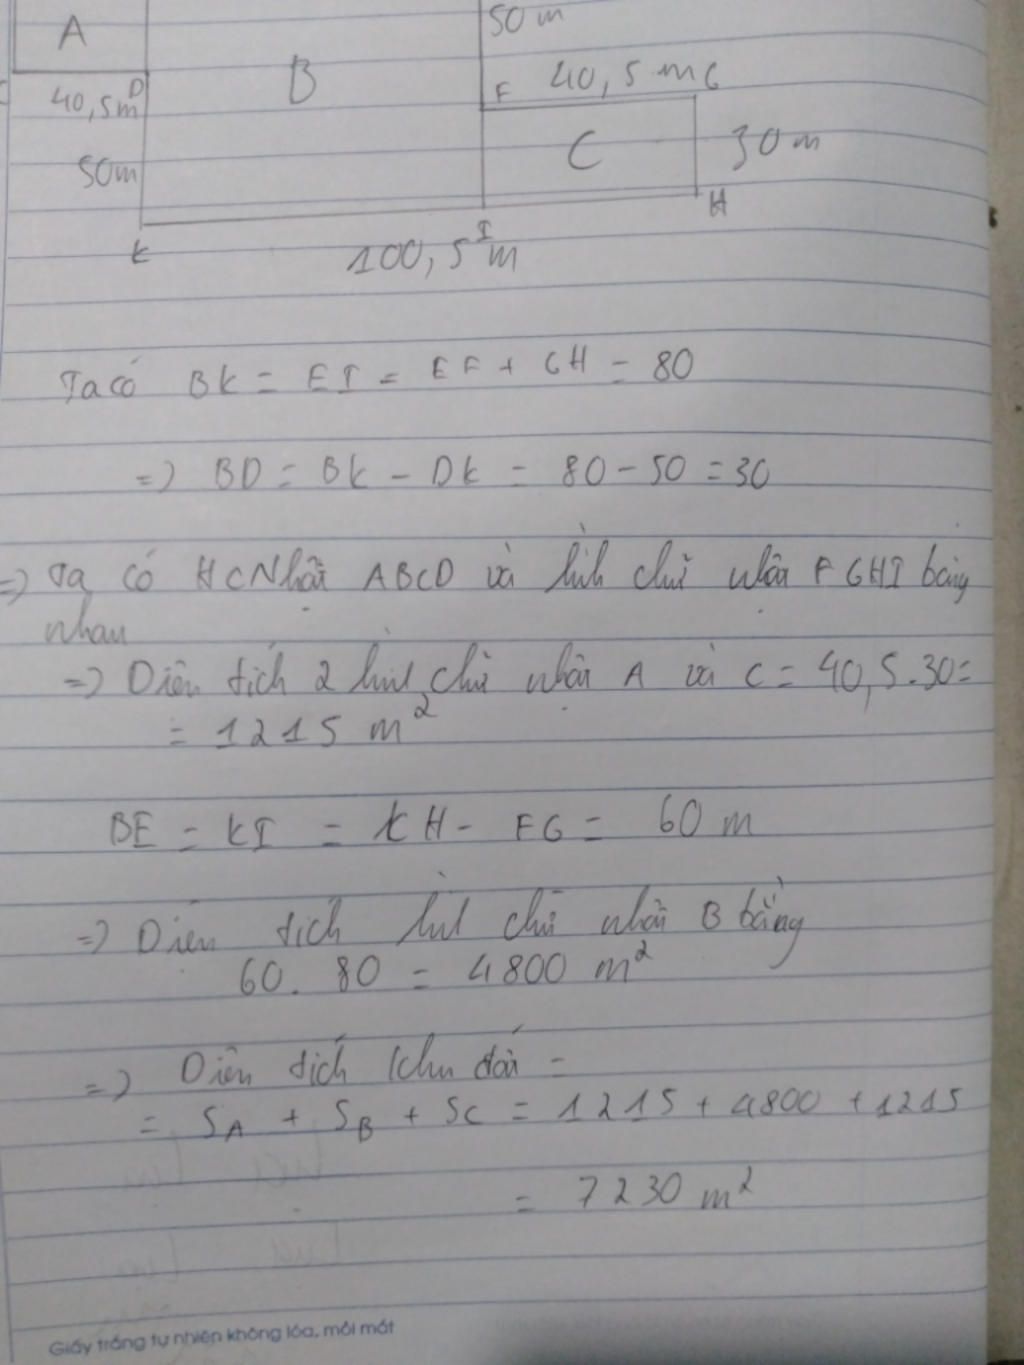 A
50 m
B
F 40,5 m G
40,5m D
C
30 m
50m
H
K
I
100,5 m
Ta có BK = EI = EF + GH = 80
=> BD = BK - DK = 80 - 50 = 30
=> Ta có HCNhật ABCD và hình chữ nhật FGHI bằng
nhau
=> Diện tích 2 hình chữ nhật A và C = 40,5.30=
= 1215 m²
BE = KI = KH - FG = 60 m
=> Diện tích hình chữ nhật B bằng
60. 80 = 4800 m²
=> Diện tích khu đất =
= SA + SB + SC = 1215 + 4800 + 1215
= 7230 m²
Giấy trắng tự nhiên không lóa, mỏi mắt